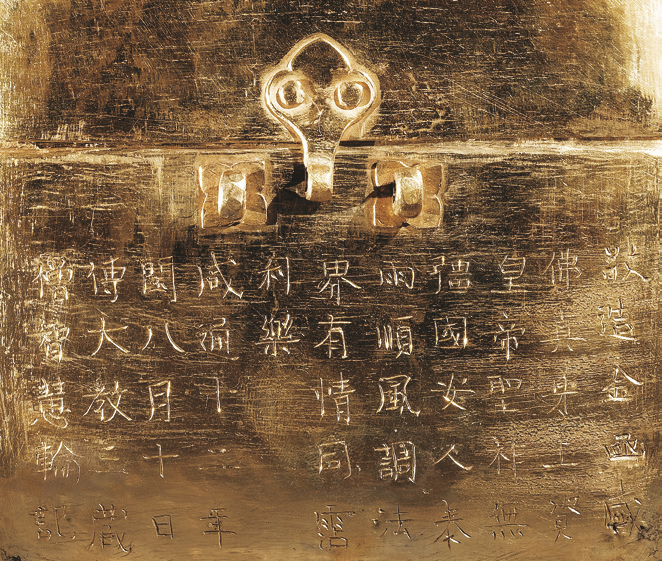 敬造金函盛
佛真身上資
皇帝聖祚無
疆國安人泰
雨順風調法
界有情同霑
利樂
咸通十二年
閏八月十日
傳大教三藏
僧智慧輪記